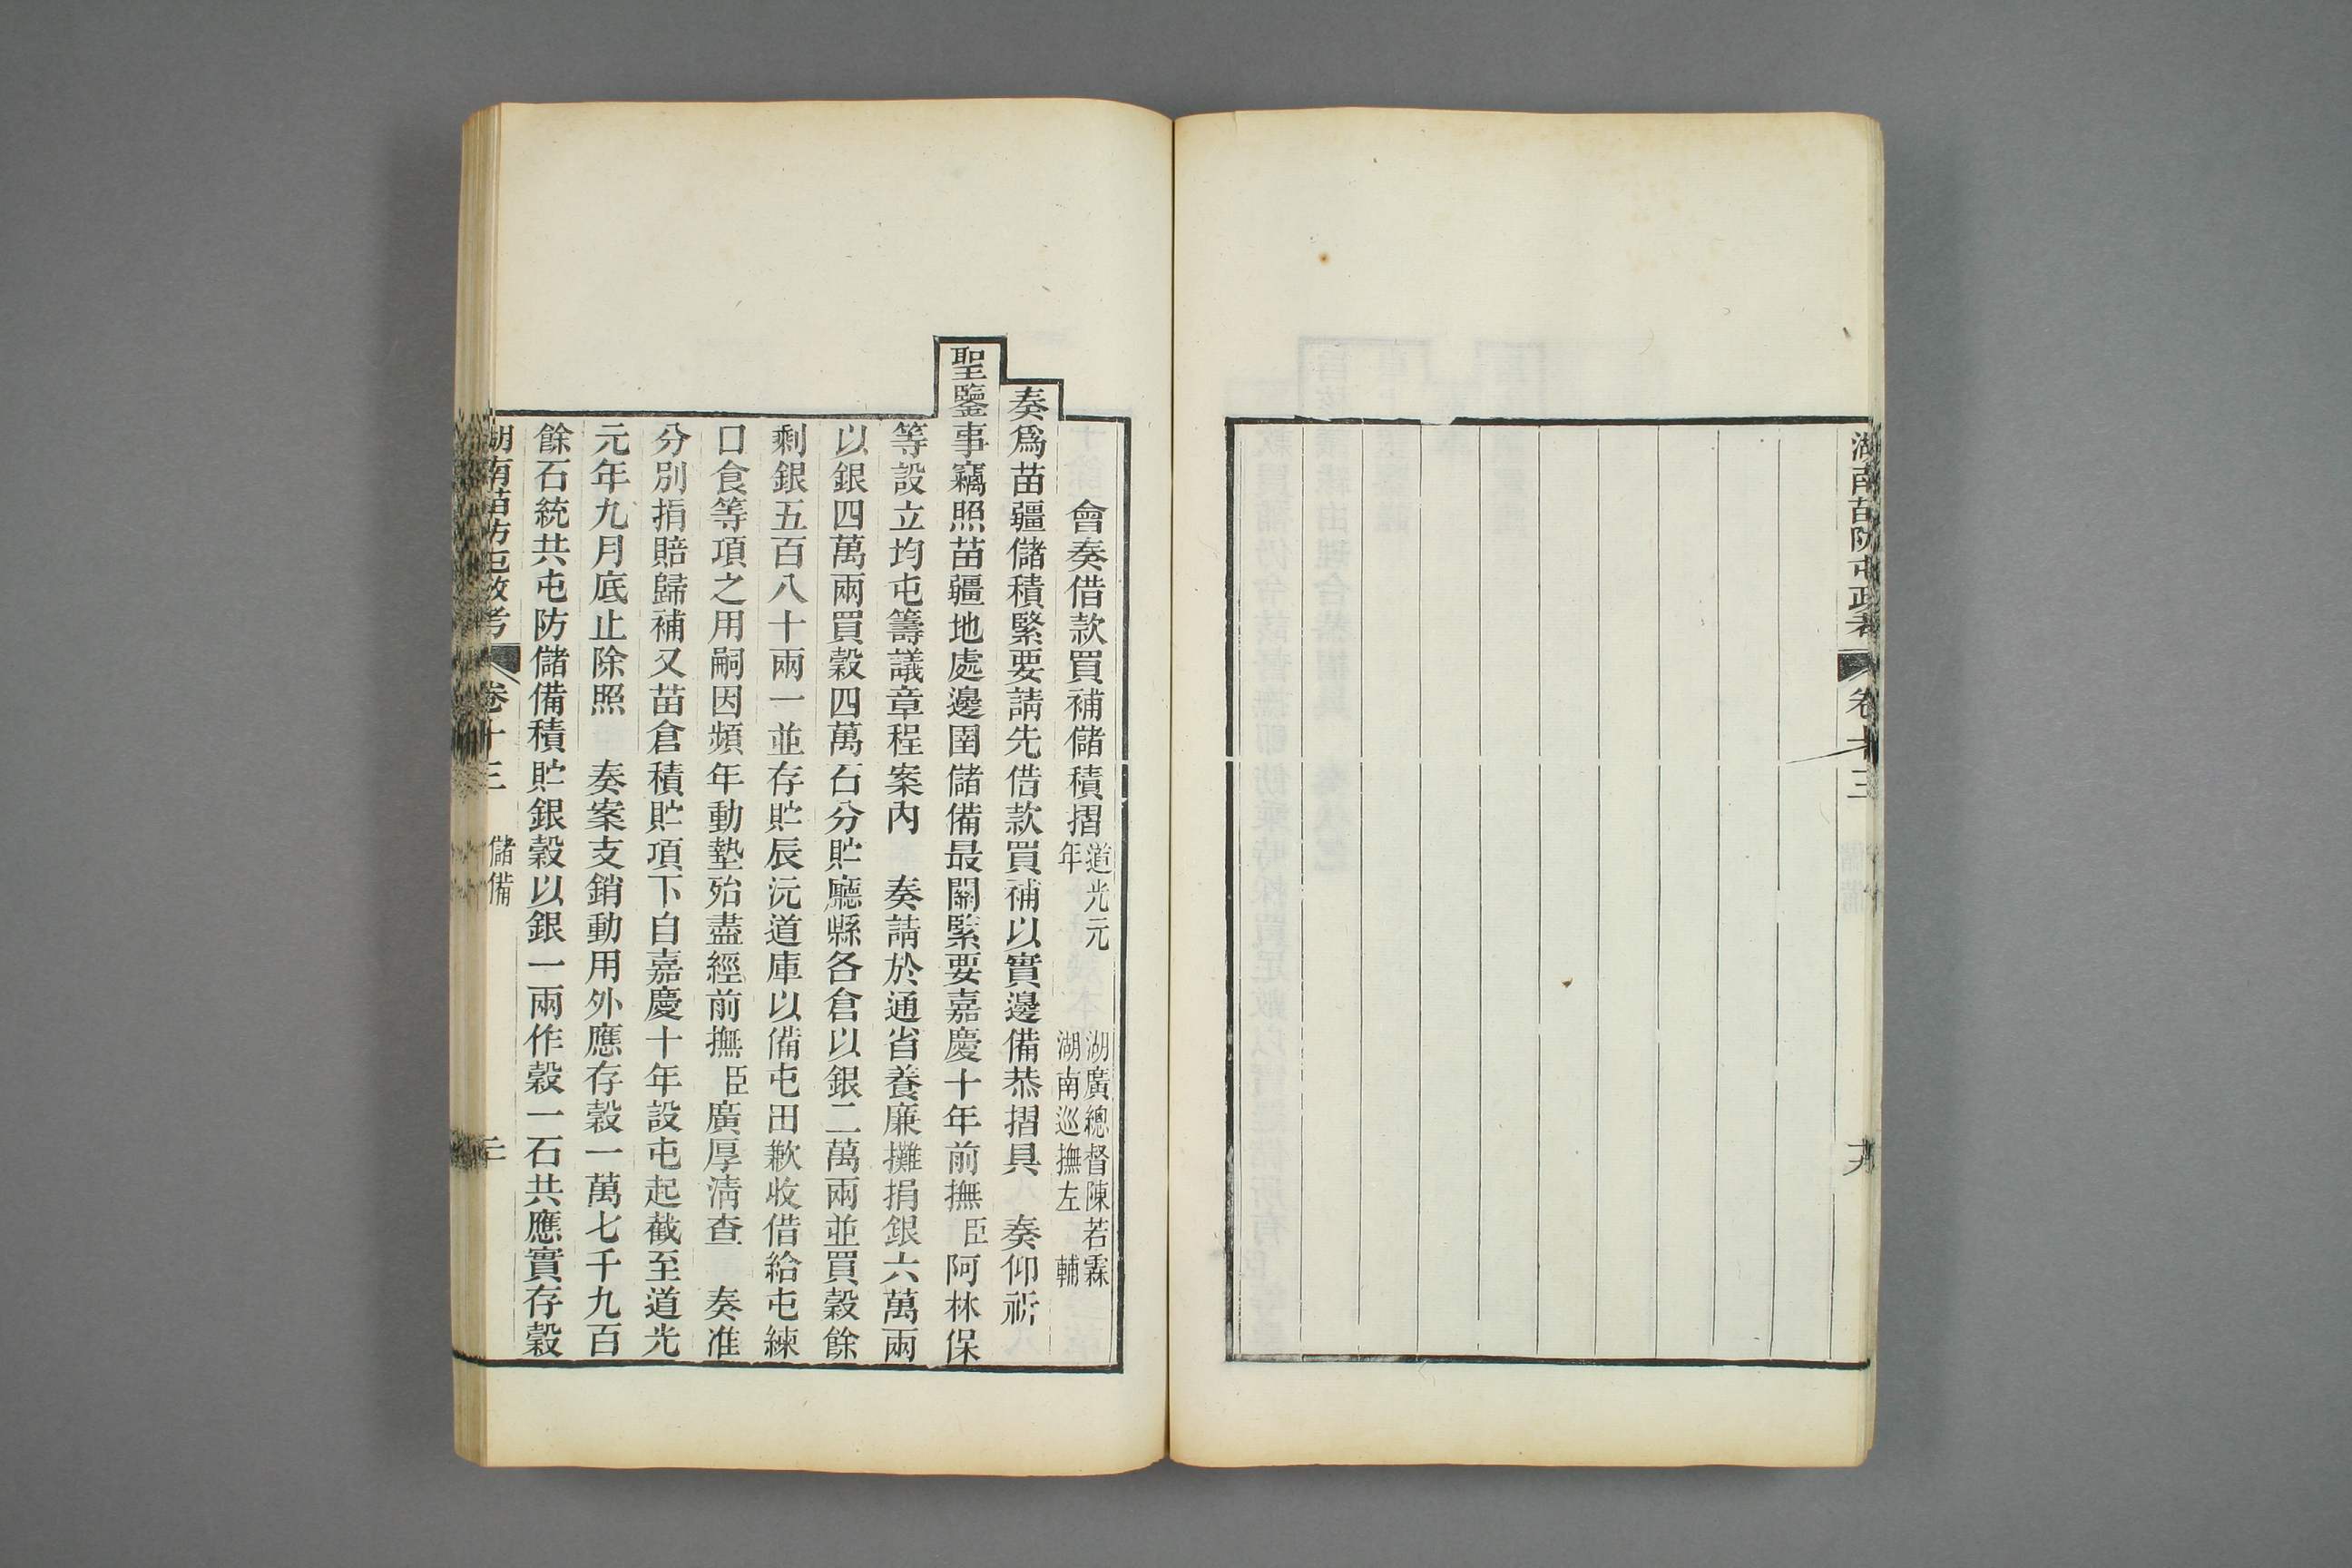 湖南苗防屯政考 卷十三 十九
會奏借款買補儲積摺 道光元年 湖廣總督陳若霖 湖南巡撫左輔
奏爲苗疆儲積緊要請先借款買補以實邊備恭摺具 奏仰祈
聖鑒事竊照苗疆地處邊圉儲備最關緊要嘉慶十年前撫臣阿林保
等設立均屯籌議章程案內 奏請於通省養廉攤捐銀六萬兩
以銀四萬兩買穀四萬石分貯廳縣各倉以銀二萬兩並買穀餘
剩銀五百八十兩一並存貯辰沅道庫以備屯田歉收借給屯練
口食等項之用嗣因頻年動墊殆盡經前撫臣廣厚清查 奏准
分別捐賠歸補又苗倉積貯項下自嘉慶十年設屯起截至道光
元年九月底止除照 奏案支銷動用外應存穀一萬七千九百
餘石統共屯防儲備積貯銀穀以銀一兩作穀一石共應實存穀
湖南苗防屯政考 卷十三 儲備